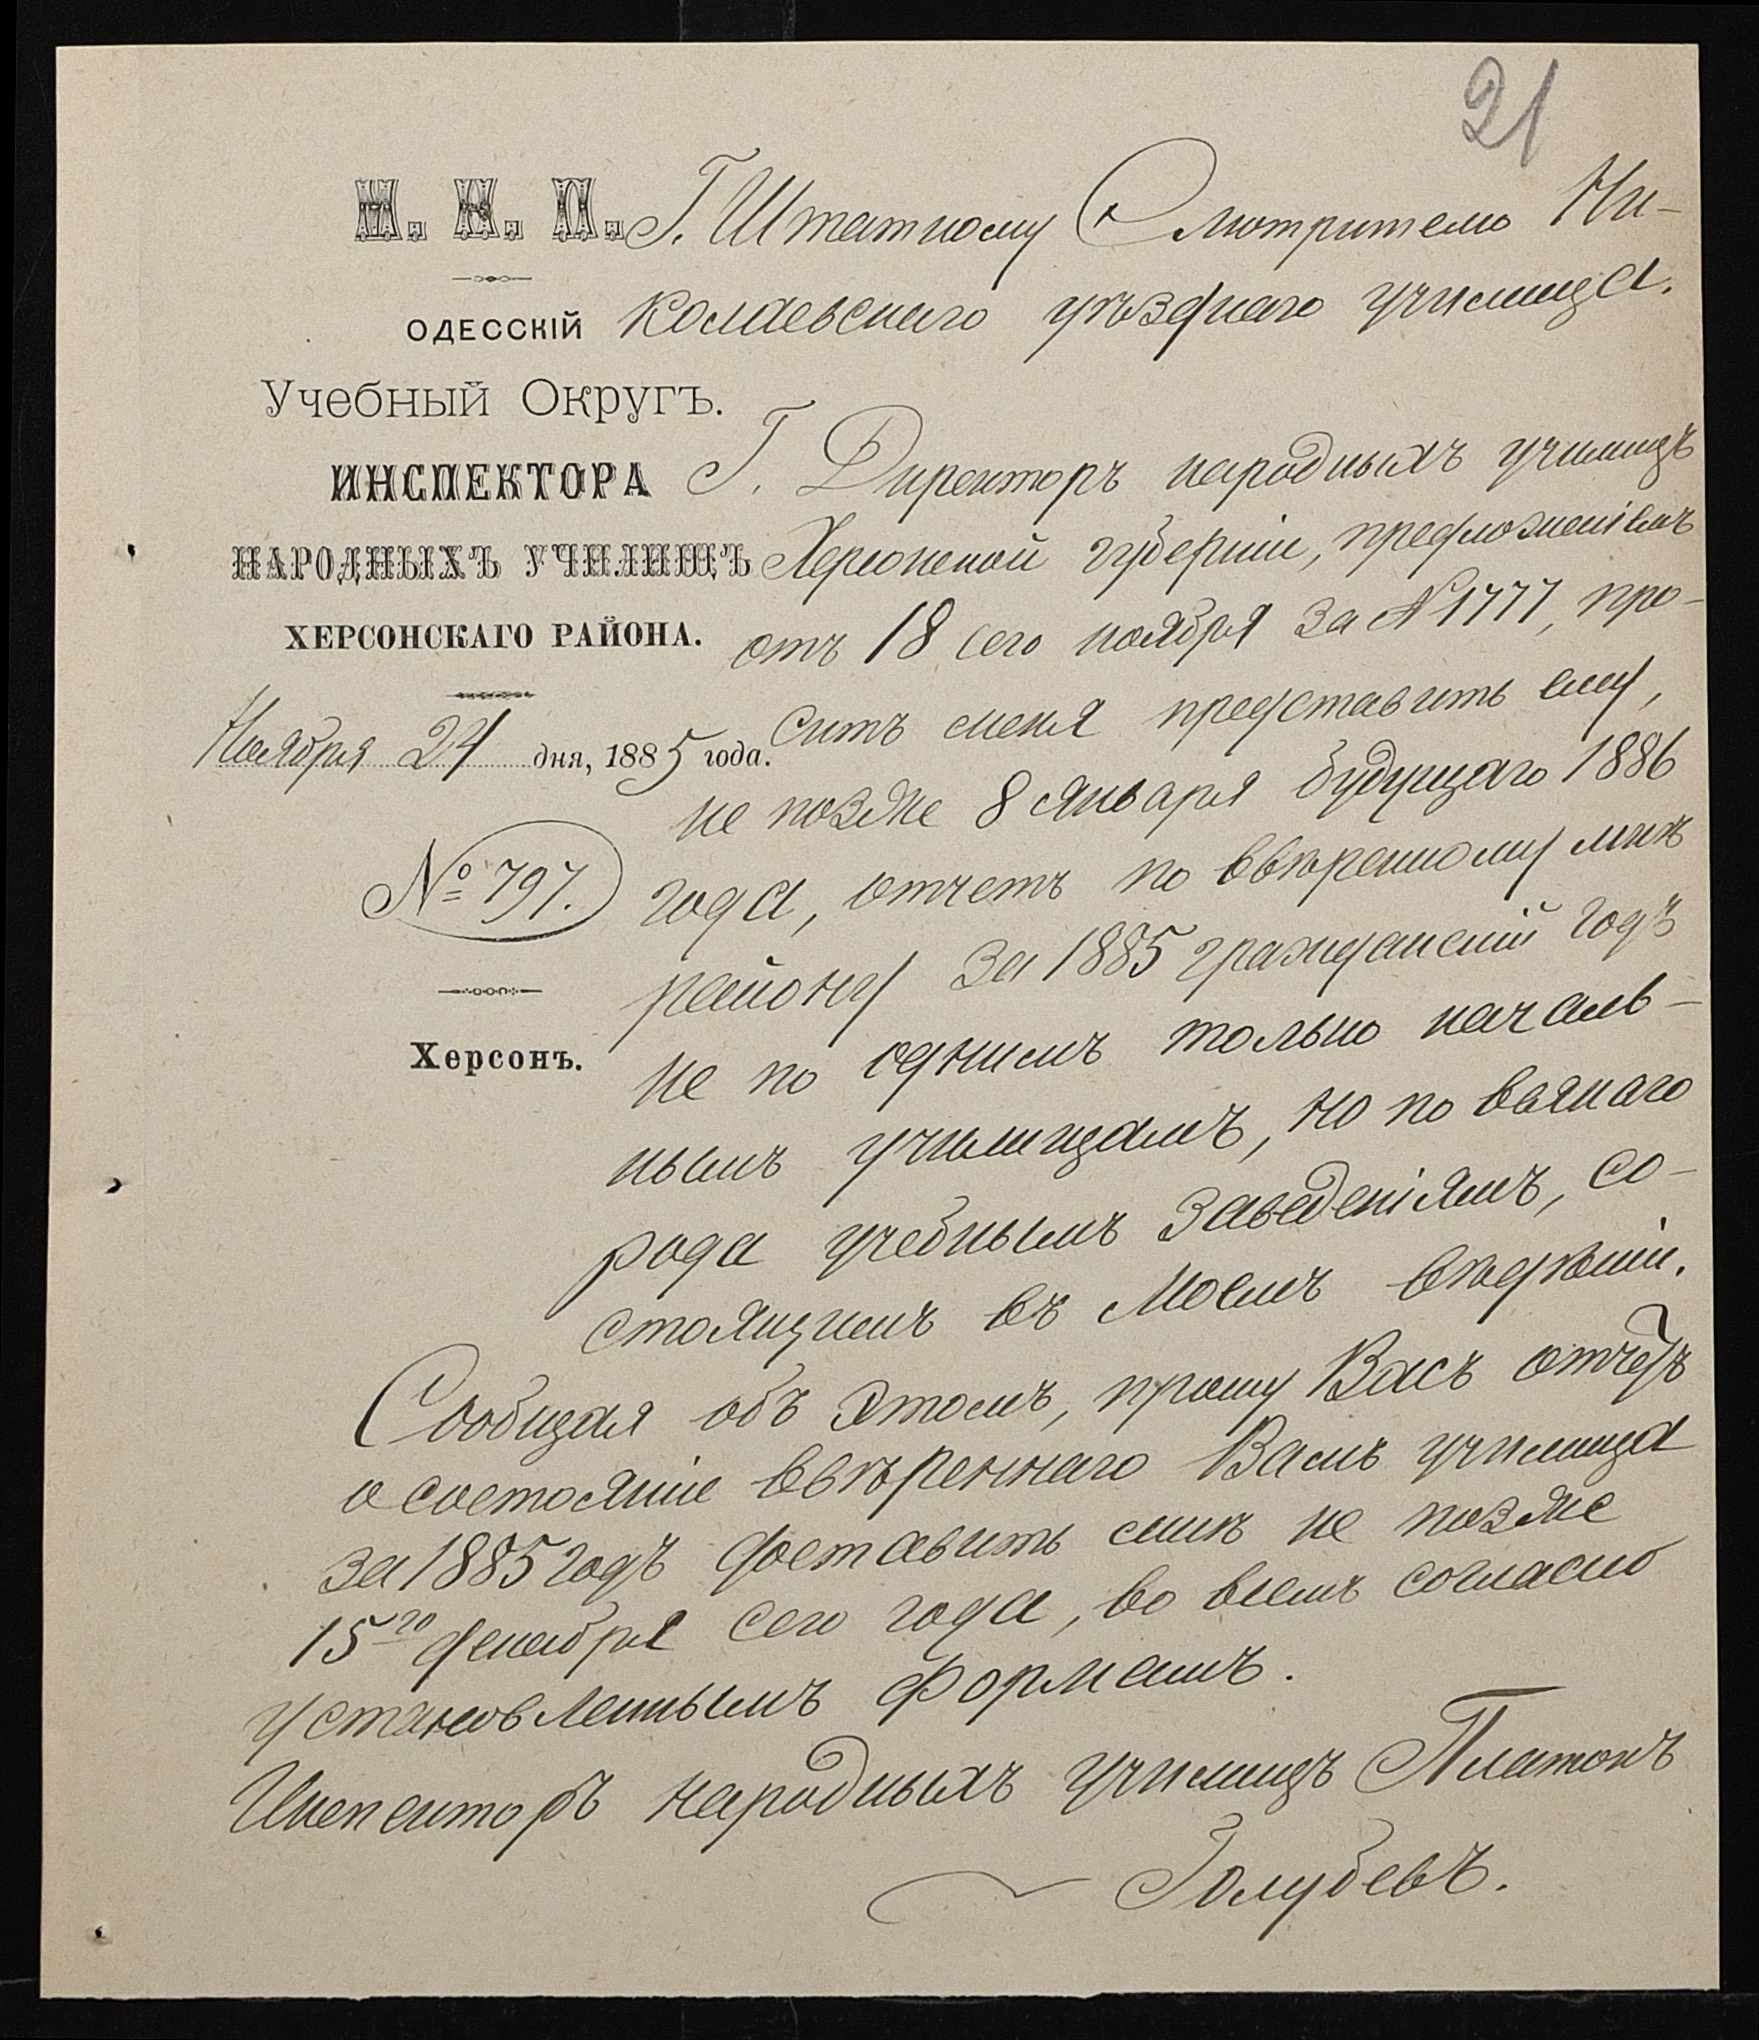 21
М. Н. П.
ОДЕССКІЙ
Учебный Округъ.
ИНСПЕКТОРА
НАРОДНЫХЪ УЧИЛИЩЪ
ХЕРСОНСКАГО РАЙОНА.
Ноября 24 дня, 1885 года.
№ 797.
Херсонъ.
Г. Штатному Смотрителю Ни-
колаевскаго уѣзднаго училища.
Г. Директоръ народныхъ училищъ
Херсонской губерніи, предложеніемъ
отъ 18 сего ноября за № 1777, про-
ситъ меня представить ему,
не позже 8 января будущаго 1886
года, отчетъ по ввѣренному мнѣ
району за 1885 гражданскій годъ
не по однимъ только началь-
нымъ училищамъ, но по всякаго
рода учебнымъ заведеніямъ, со-
стоящимъ въ моемъ вѣдѣніи.
Сообщая объ этомъ, прошу Васъ отчетъ
о состояніи ввѣреннаго Вамъ училища
за 1885 годъ доставить мнѣ не позже
15го декабря сего года, во всемъ согласно
установленнымъ формамъ.
Инспекторъ народныхъ училищъ Платонъ
Голубевъ.